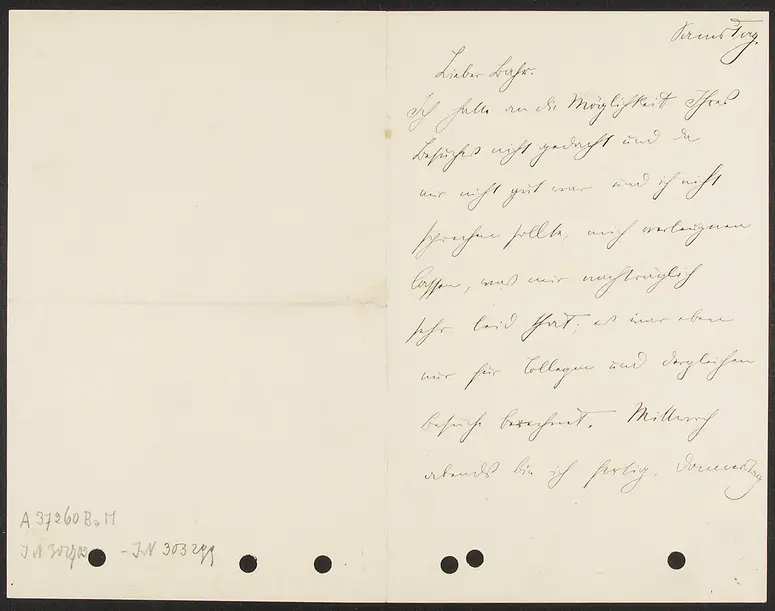 Samstag.
Lieber Bahr.
Ich hatte an die Möglichkeit Ihres
Besuches nicht gedacht und da
mir nicht gut war und ich nicht
sprechen sollte, mich verleugnen
lassen, was mir nachträglich
sehr leid that; es war eben
nur für Collegen und dergleichen
Besuche berechnet. Mittwoch
abends bin ich fertig. Donnerstag
A 37260 Ba M
- IN 303299